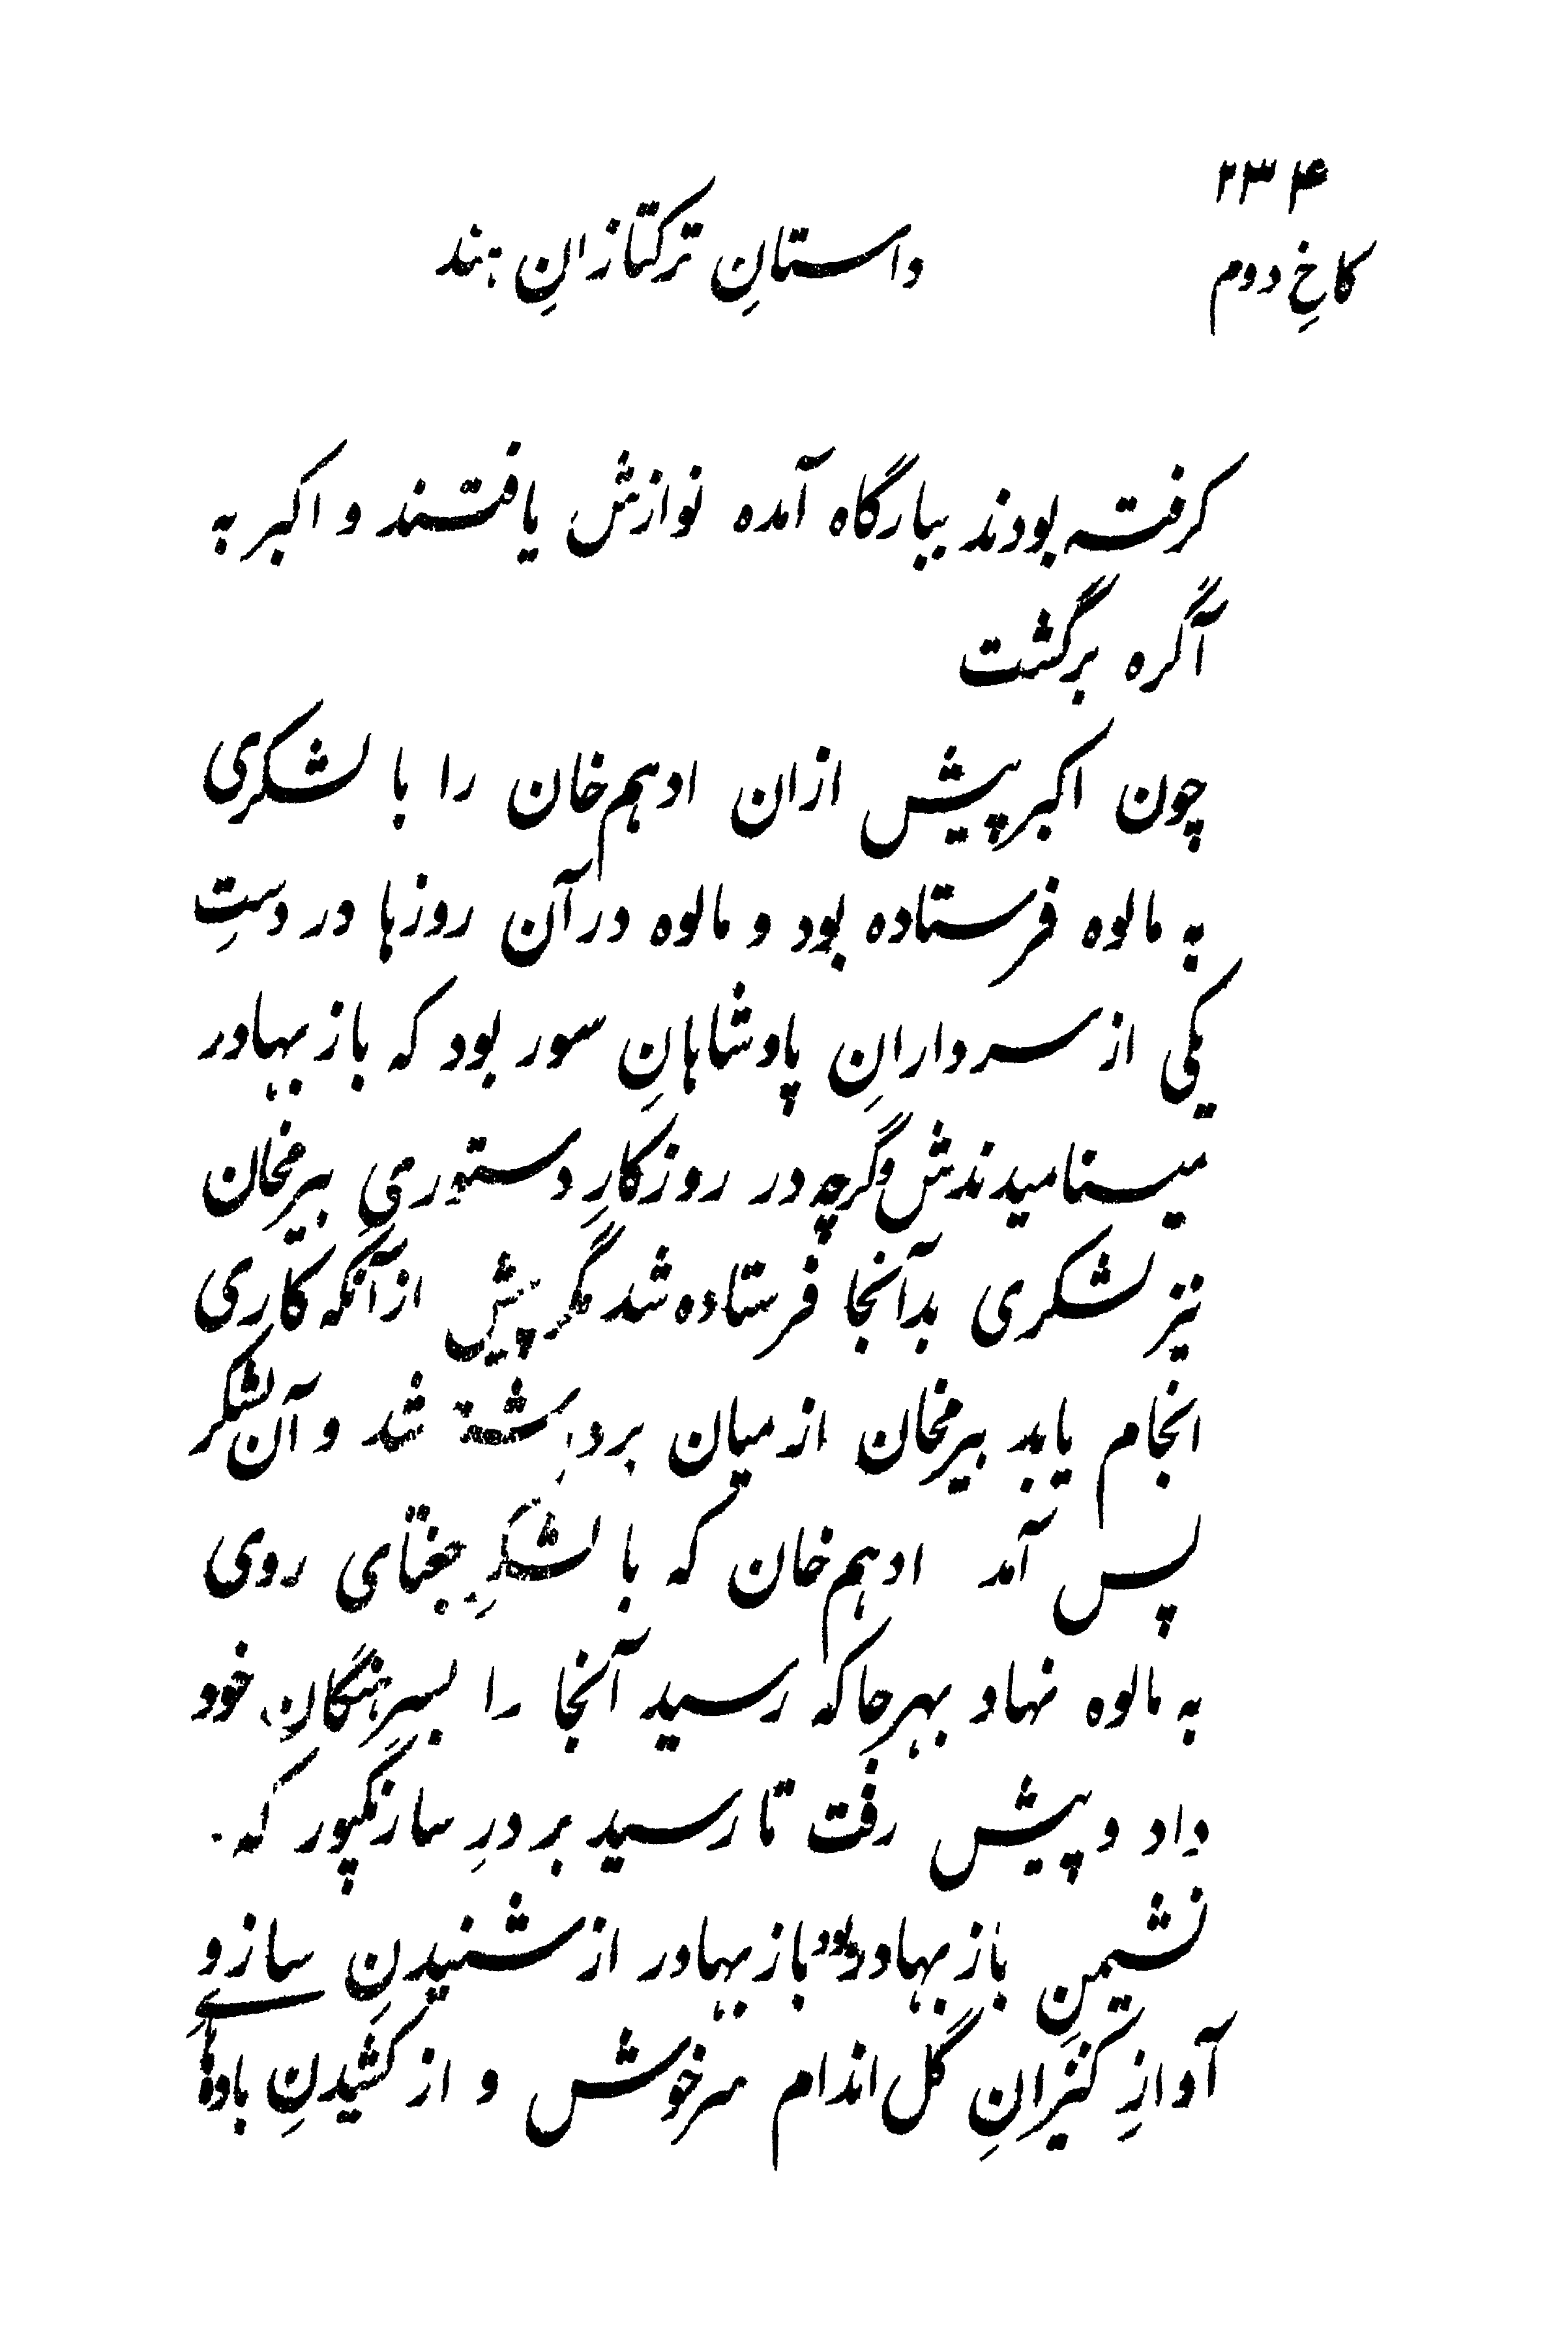 ۲۳۴
کاخِ دوم
داستانِ ترکتازانِ هند
کرفته بودند ببارگاه آمده نوازش یافتند و اکبر به
آگره برگشت
چون اکبر پیش ازان ادهم خان را با لشکری
به مالوه فرستاده بود و مالوه در آن روزها در دستِ
یکی از سردارانِ پادشاهانِ سور بود که باز بهادر
مینامیدندش وگرچه در روزکارِ دستوریِ بیرمخان
نیز لشکری بدآنجا فرستاده شد مگر پیش ازآنکه کاری
انجام یابد بیرمخان از میان برداشته شد و آن لشکر
پس آمد ادهم خان که با لشکرِ جغتای روی
به مالوه نهاد و بهر جا که رسید آنجا را بسرهنگانِ خود
داد و پیش رفت تا رسید بر درِ سارنگپور که
نشیمنِ باز بهادر بود باز بهادر از شنیدنِ ساز و
آوازِ کنیزانِ گل اندام سرخوش و از کشیدنِ باده‌هاے